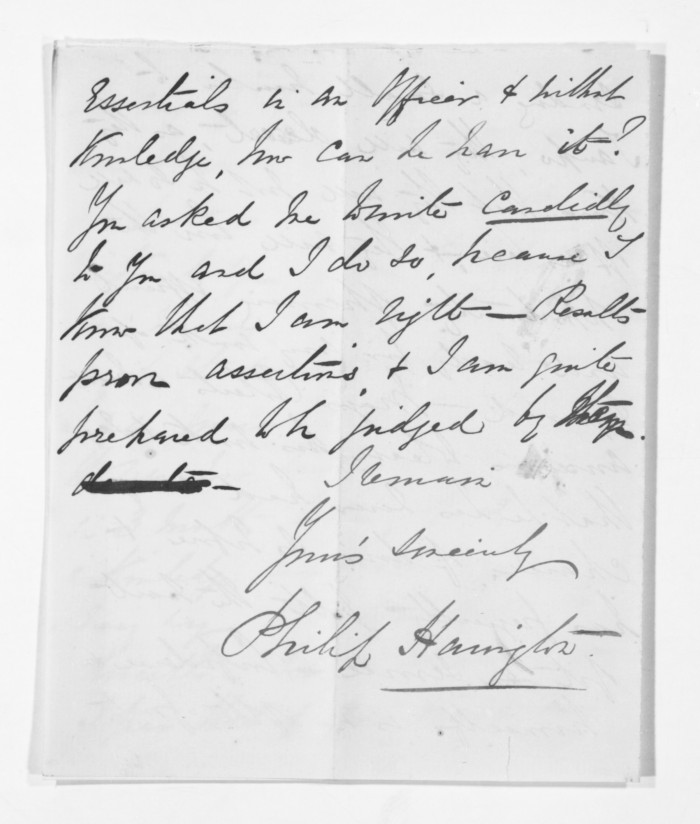 Essentials in an Officer & without
Knowledge, how can he have it?
You asked me to write Candidly
to You and I do so, because I
Know that I am right — Results
prove assertions, & I am quite
prepared to be judged by
I remain
Your's sincerely
Philip Harington